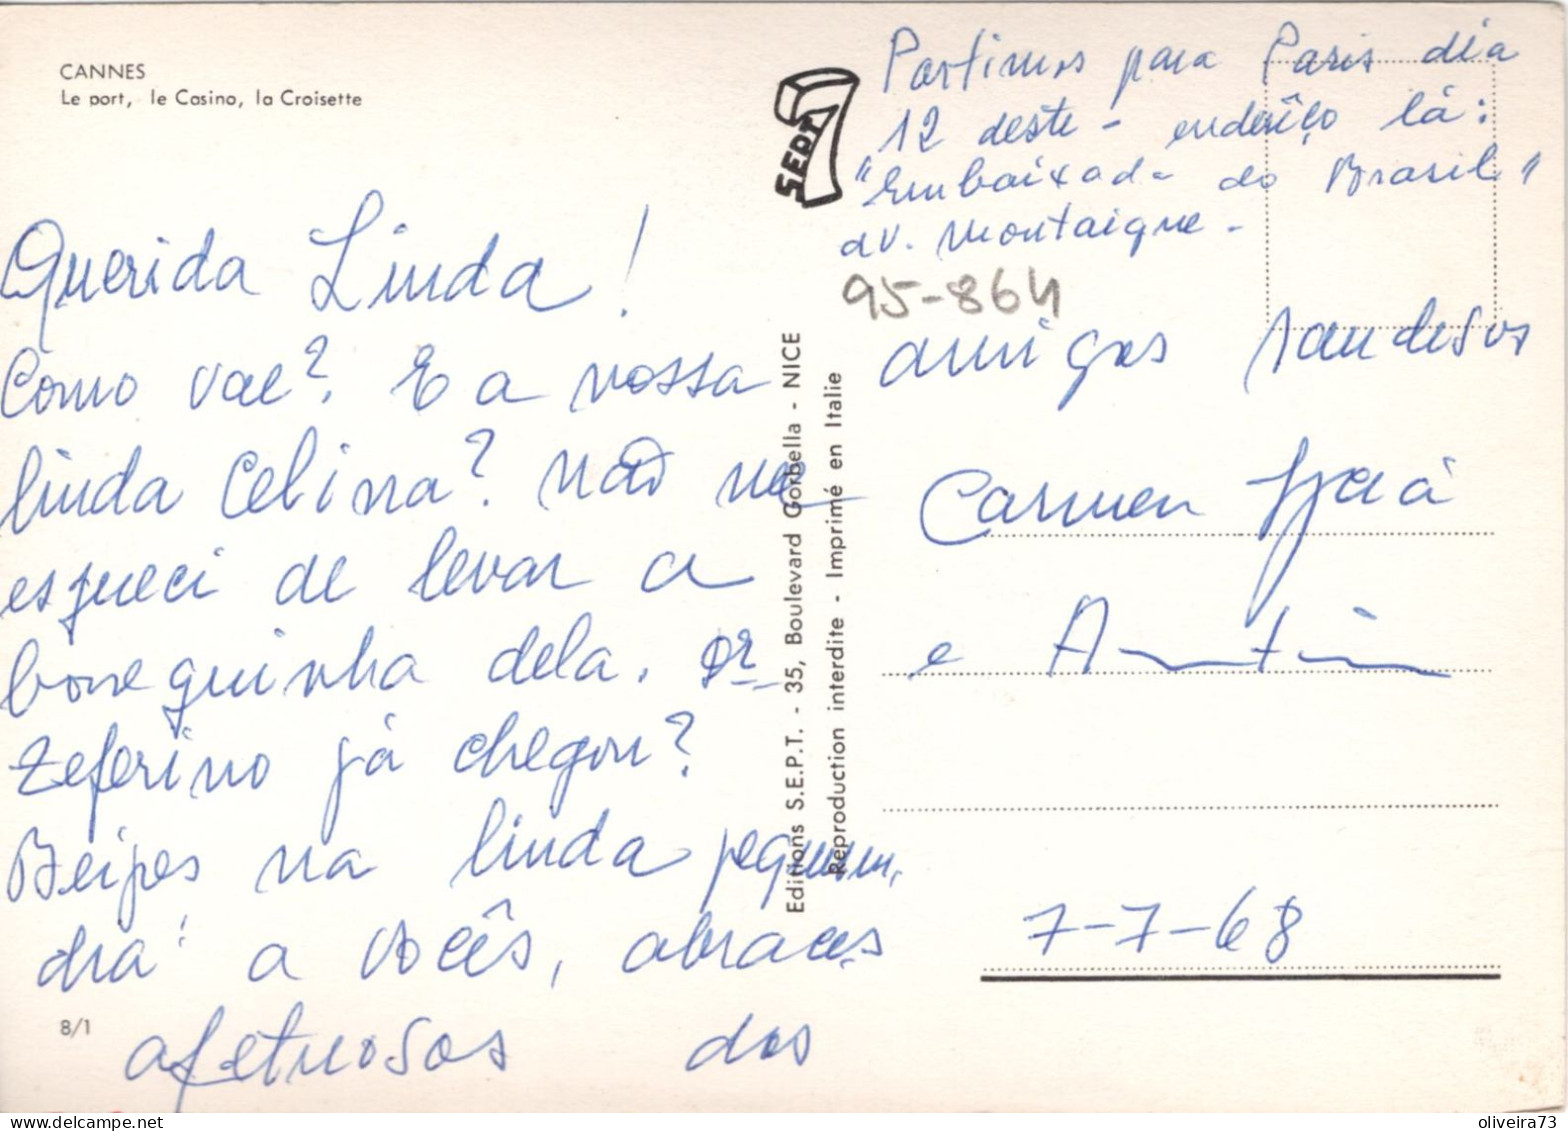 CANNES
Le port, le Casino, la Croisette
Querida Linda!
Como vae? E a vossa
linda Celina? Não me
esqueci de levar a
bonequinha dela.
Zeferino já chegou?
Beijos na linda
a vocês, abraços
afetuosos dos
8/1
SEPT 7
Editions S.E.P.T. - 35, Boulevard Gorbella - NICE
Reproduction interdite - Imprimé en Italie
Partimos para Paris dia
12 deste - enderêço lá:
"Embaixada do Brasil"
av. Montaigne -
95-864
amigos saudosos
Carmen
e
7-7-68
oliveira73